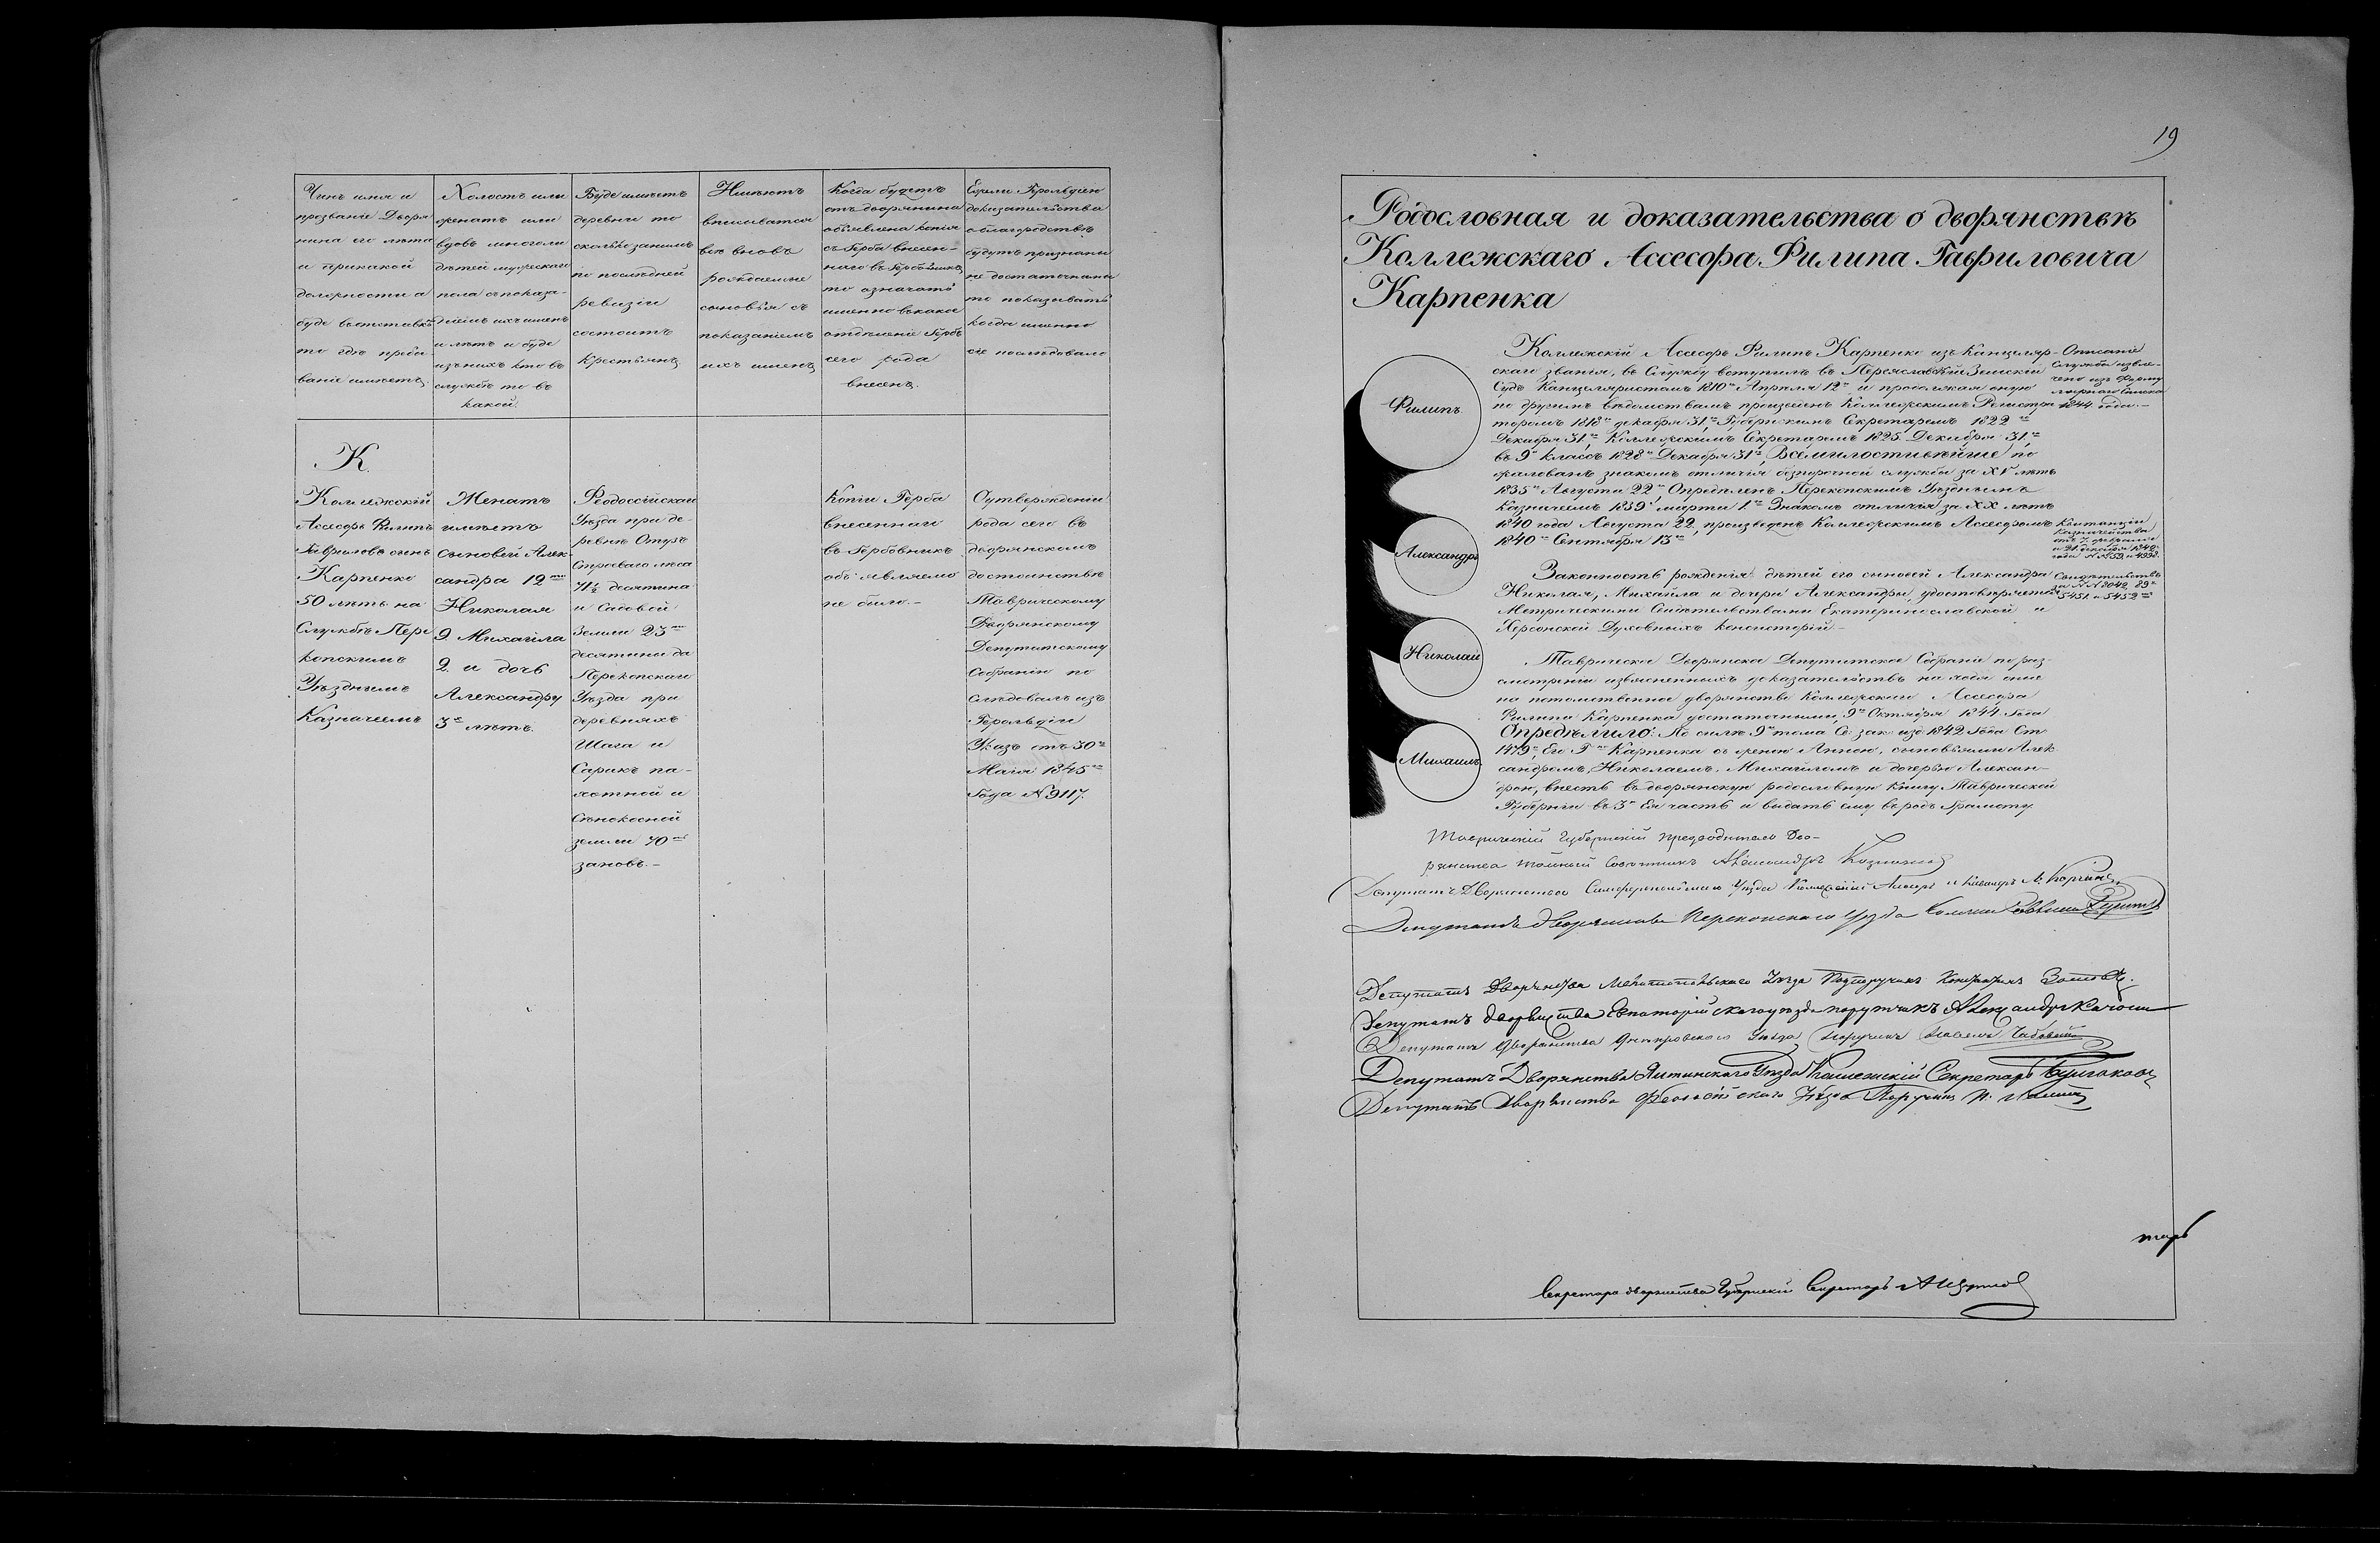 Чинъ имя и
прозваніе Дворя
нина его лѣта
и при какой
должности а
буде въ отставкѣ
то гдѣ пребы
ваніе имѣетъ.
Холостъ или
женатъ или
вдовъ многоли
дѣтей мужескаго
пола съ показа-
ніемъ ихъ именъ
и лѣтъ и буде
изъ нихъ кто въ
службѣ то въ
какой.
Буде имѣетъ
деревни то
сколько за нимъ
по послѣдней
ревизіи
состоитъ
Крестьянъ
Имѣютъ
вписыватся
всѣ вновь
рождаемые
сыновья съ
показаніемъ
ихъ именъ
Когда будетъ
отъ дворянина
объявлена копія
съ Герба внесен-
наго въ Гербовникъ
то означать
именно въ какое
отдѣленіе Гербъ
сего рода
внесенъ.
Ежели Герольдіею
доказательства
о благородствѣ
будутъ признаны
не достаточными
то показывать
когда именно
сіе послѣдовало
К.
Коллежскій
Ассесоръ Филипъ
Гавриловъ сынъ
Карпенко
50 лѣтъ на
Службѣ Пере
копскимъ
Уѣзднымъ
Казначеемъ
Женатъ
имѣетъ
сыновей Алек
сандра 12
Николая
9. Михайла
2. и дочь
Александру
3 лѣтъ.
Феодосійскаго
Уѣзда при де-
ревнѣ Отузъ
Строеваго лѣса
71½ десятина
и Садовой
Земли 23
десятины да
Перекопскаго
Уѣзда при
деревняхъ
Шага и
Сарикъ па-
хотной и
Сѣнокосной
земли 70
зановъ.-
Копіи Герба
внесеннаго
въ Гербовникъ
объявляемо
не было.-
О утвержденіи
рода сего въ
дворянскомъ
достоинствѣ
Таврическому
Дворянскому
Депутатскому
Собранію по
слѣдовалъ изъ
Герольдіи
Указъ отъ 30
Маія 1845
Года № 9117.
19
Родословная и доказательства о дворянствѣ
Коллежскаго Ассесора Филипа Гавриловича
Карпенка
Филипъ
Александръ
Николай
Михаилъ
Коллежскій Ассесоръ Филипъ Карпенко изъ Канцеляр-
скаго званія, въ Службу вступилъ въ Переяславскій Земскій
Судъ Канцеляристомъ 1810 Апрѣля 12 и продолжая оную
по другимъ вѣдомствамъ произведенъ Коллежскимъ Регистра
торомъ 1818 декабря 31, Губернскимъ Секретаремъ 1822
Декабря 31, Коллежскимъ Секретаремъ 1825 Декабря 31,
въ 9 классъ 1828 Декабря 31, Всемилостивѣйше по
жалованъ знакомъ отличія безпорочной службы за XV лѣтъ
1835 Августа 22, Опредѣленъ Перекопскимъ Уѣзднымъ
Казначеемъ 1839 марта 1. Знакомъ отличія за XX лѣтъ
1840 года Августа 22, произведенъ Коллежскимъ Ассесоромъ
1840 Сентября 13
Описаніе
Службы извле-
чено изъ Форму
лярнаго Списка
1844 года.-
Квитанціи
Казначейства
отъ 7 февраля
и 21 декабря 1842
года №№ 59 и 4992.
Законность рожденія дѣтей его сыновей Александра
Николая, Михайла и дочери Александры, удостовѣряется
Метрическими Свидѣтельствами Екатеринославской и
Херсонской Духовныхъ консисторій.-
Свидѣтельствъ
за №№ 2042, 29
5451. и 5452
Таврическое Дворянское Депутатское Собраніе по раз-
смотреніи изъясненныхъ доказательствъ находя оные
на потомственное дворянство Коллежскаго Ассесора
Филипа Карпенка достаточными, 9 Октября 1844 Года
Опредѣлило: По силѣ 9 тома Св. зак. изд. 1842 Года Ст.
1479 Его Г Карпенка съ женою Анною, сыновьями Алек
сандромъ, Николаемъ, Михайломъ и дочерью Александ-
рою, внесть въ дворянскую родословную Книгу Таврической
Губерніи въ 3 Ея часть и выдать ему въ родъ Грамоту.
Таврическій Губернскій предводитель Дво-
рянства тайный Совѣтникъ Александръ Казначеевъ
Депутатъ Дворянства Симферопольскаго Уѣзда Коллежскій Ассесоръ и Кавалеръ
Депутатъ дворянства Перекопскаго уѣзда
Депутатъ Дворянства Мелитопольскаго Уѣзда Подпоручикъ
Депутатъ дворянства Евпаторійскаго уѣзда поручикъ Александръ Качони
Депутатъ дворянства Днѣпровскаго Уѣзда Поручикъ
Депутатъ Дворянства Ялтинскаго Уѣзда Коллежскій Секретарь Булгаковъ
Депутатъ Дворянства Феодосійскаго Уѣзда Поручикъ
тарь
Секретарь дворянства Губернскій Секретарь